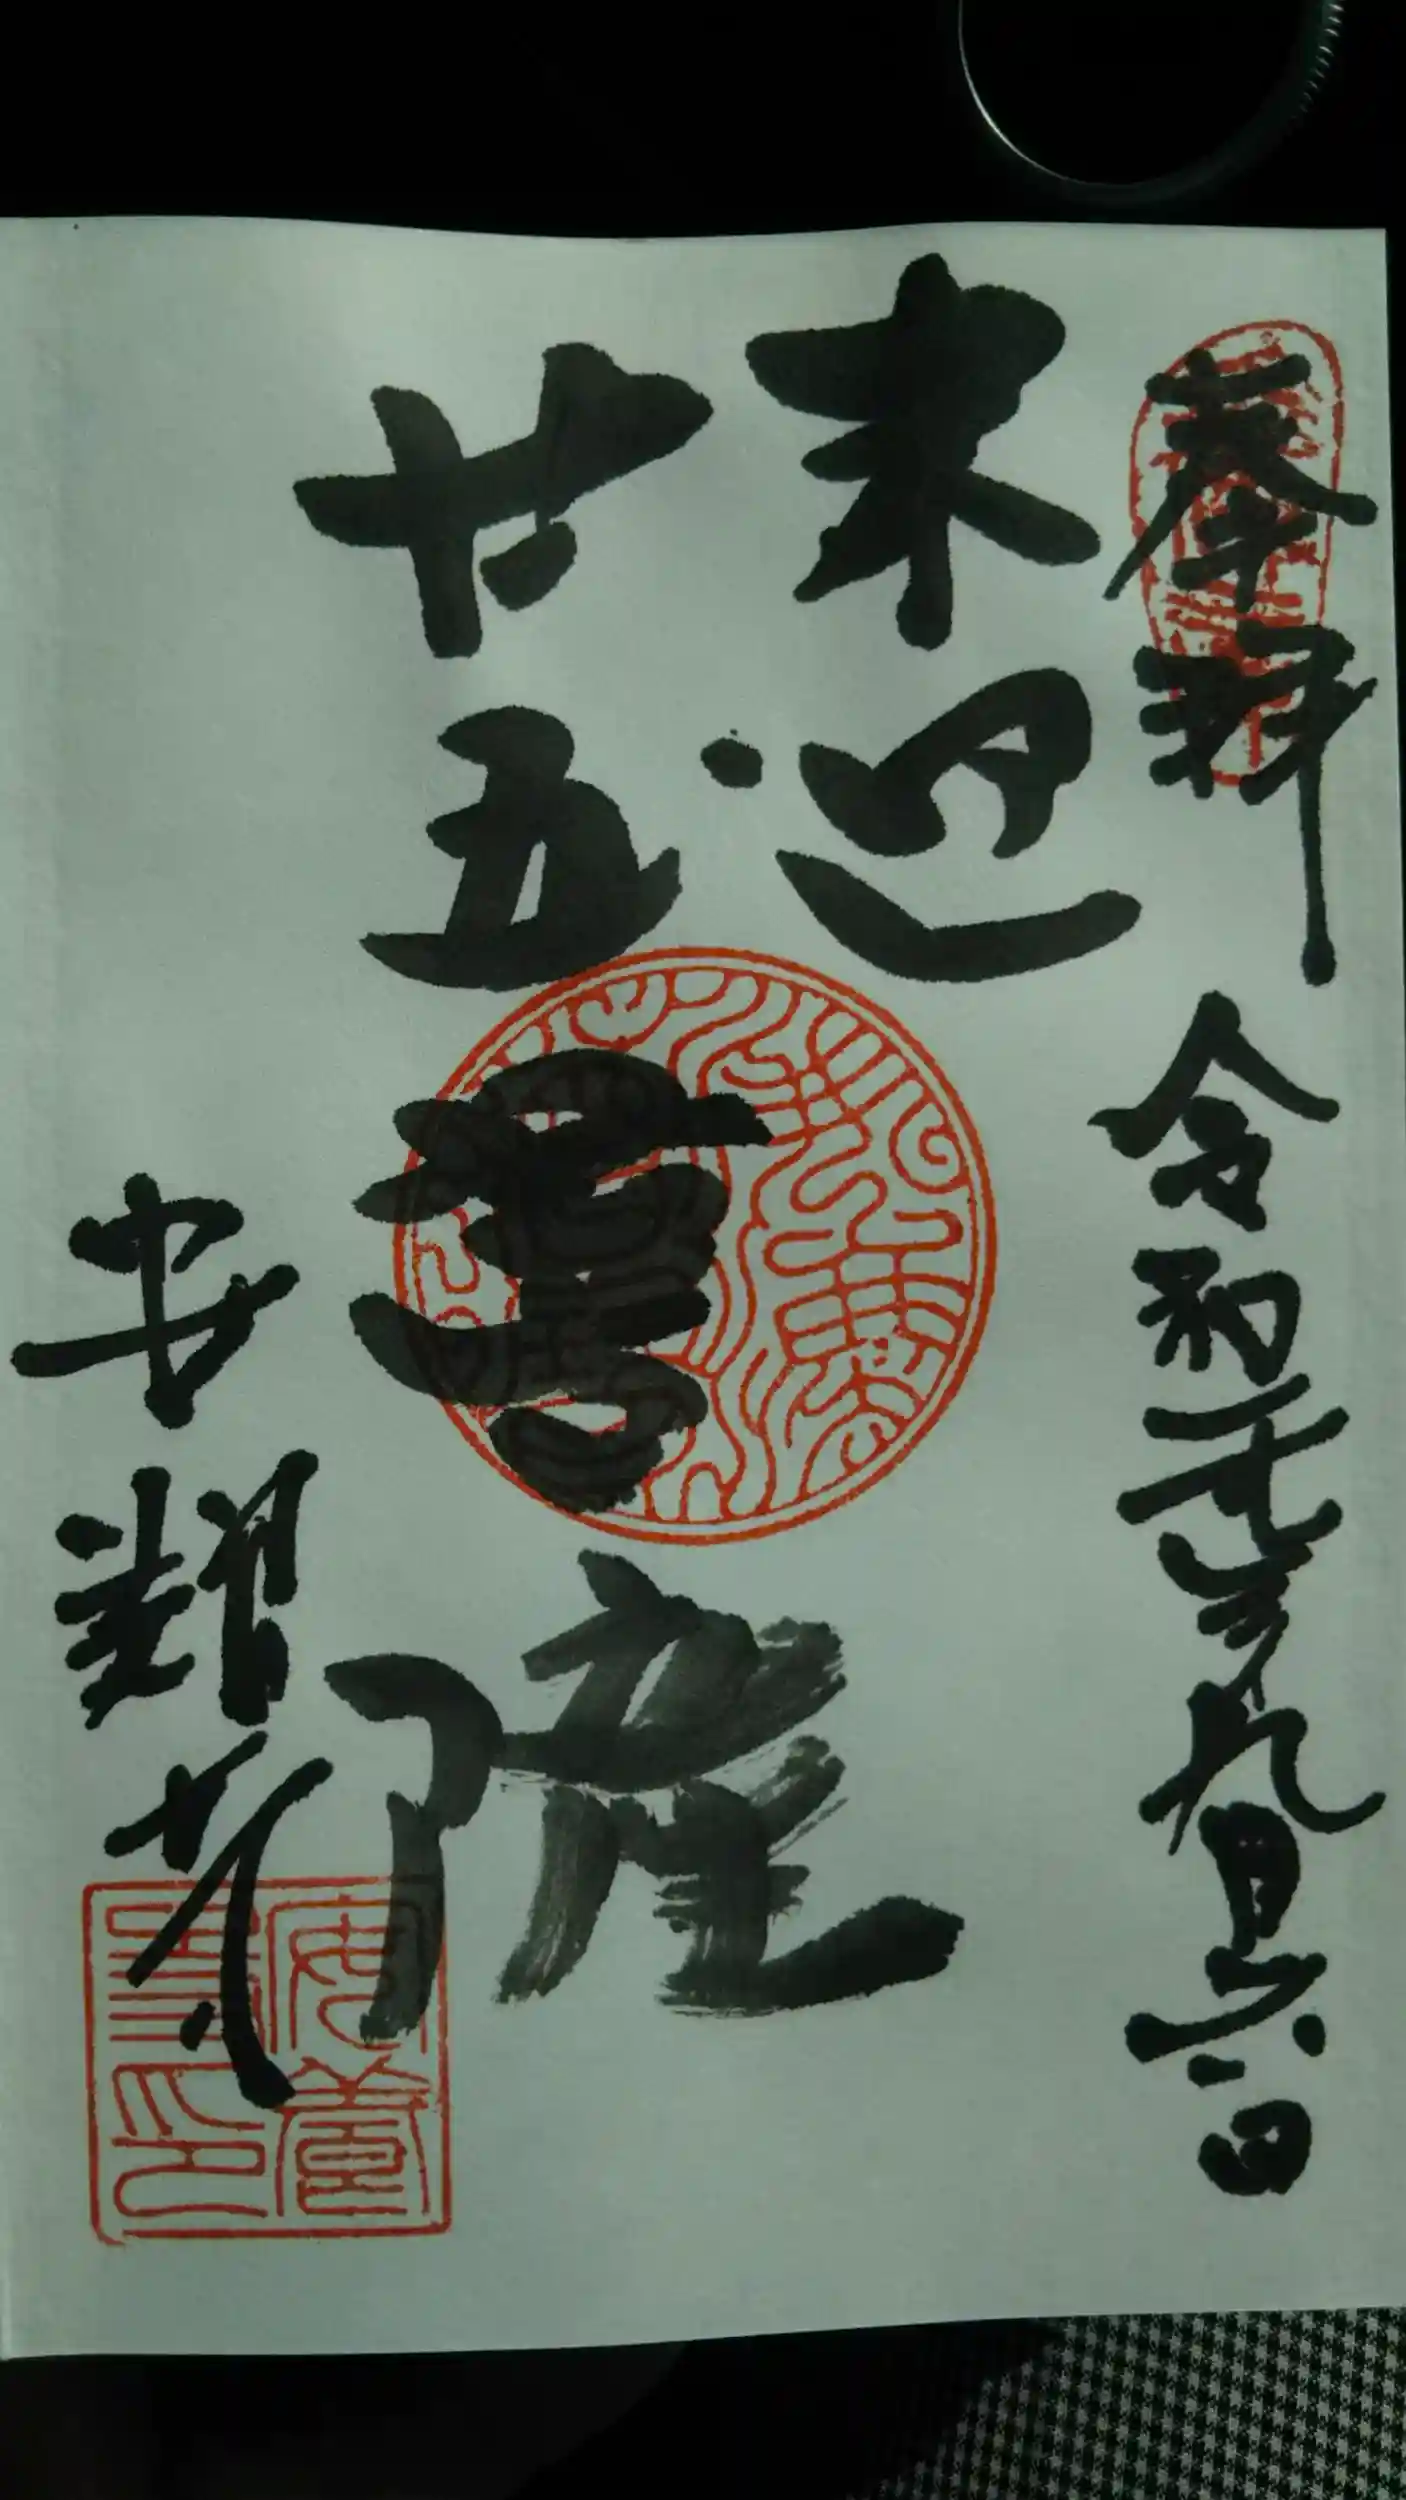 奉拝 令和元年九月六日
来迎
廿五菩薩
安養寺
安養寺印